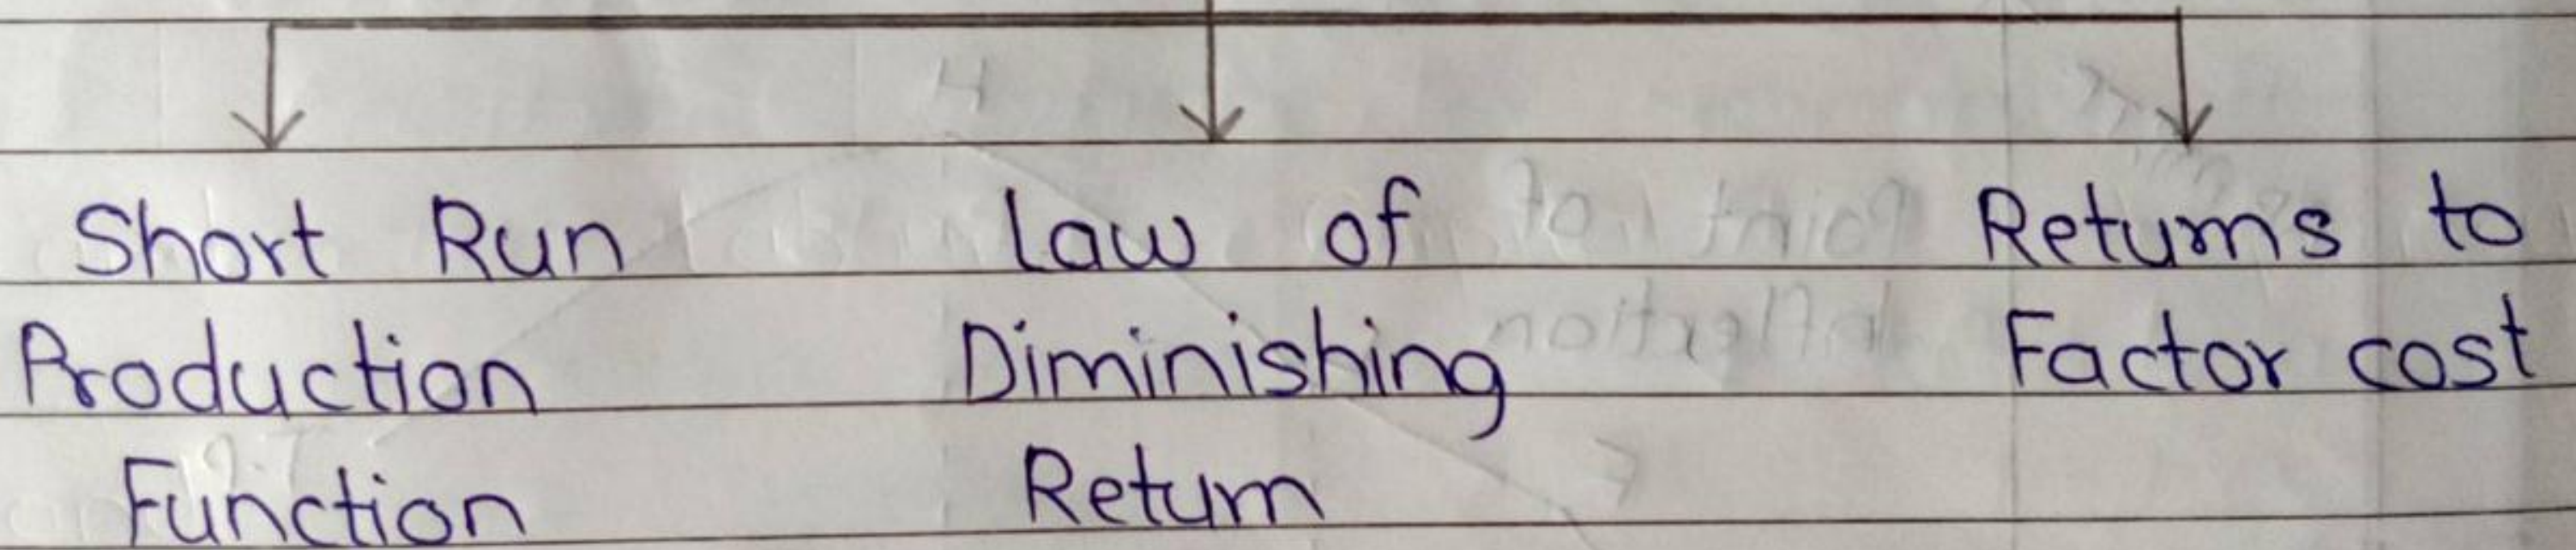 Short Run
Production
Function
Law of
Diminishing
Return
Returns to
Factor cost